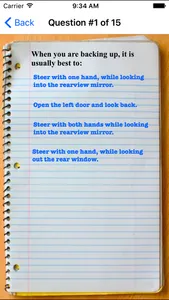 Carrier 9:34 AM
Back Question #1 of 15
When you are backing up, it is
usually best to:
Steer with one hand, while looking
into the rearview mirror.
Open the left door and look back.
Steer with both hands while looking
into the rearview mirror.
Steer with one hand, while looking
out the rear window.